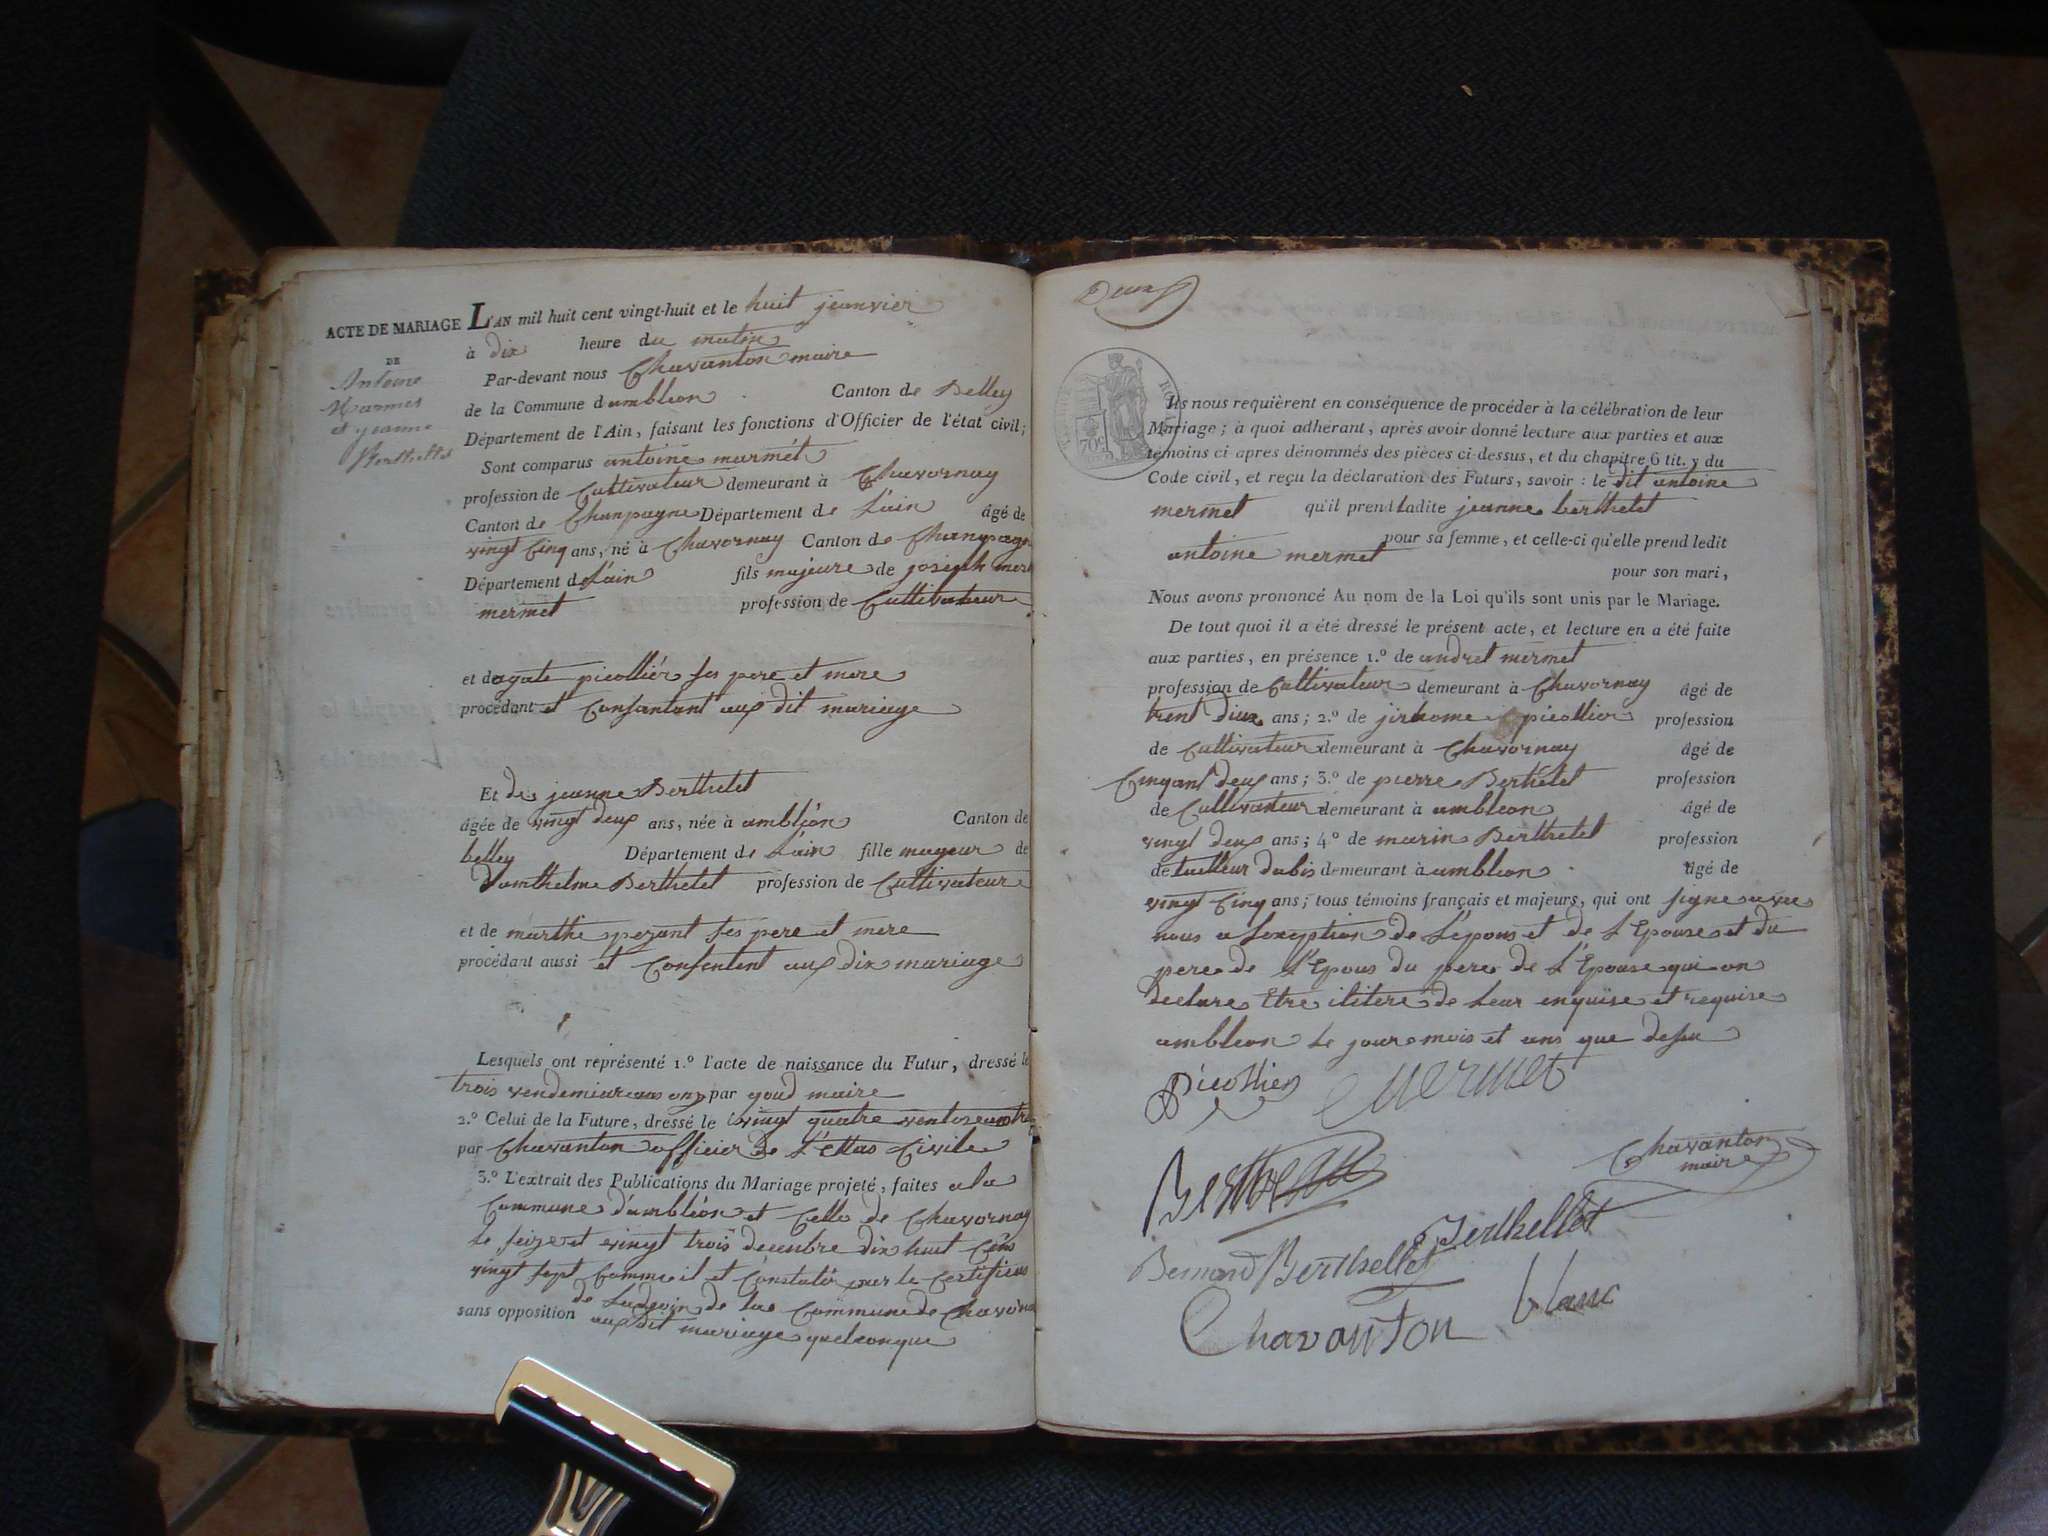 ACTE DE MARIAGE
DE
Antoine
Marmet
et jeanne
Berthelet
L'AN mil huit cent vingt-huit et le huit jeanvier
à dix heure du matin
Par-devant nous Chavanton maire
de la Commune d'ambleon Canton de Belley
Département de l'Ain, faisant les fonctions d'Officier de l'état civil;
Sont comparus antoine marmét
profession de Cultivateur demeurant à Chavornay
Canton de Chanpagne Département de L'ain âgé de
vingt Cinq ans, né à Chavornay Canton de Chanpagn
Département de L'ain fils majeure de joseph mer
mermet profession de Cultivateur
et de agate picollier ses pere et mere
procédant et Consantant aux dit mariage
Et de jeanne Berthelet
âgée de vingt deux ans, née à ambléon Canton de
belley Département de L'ain fille mageur de
d'anthelme Berthelet profession de Cultivateur
et de marthe pezant ses pere et mere
procédant aussi et Consentent aux dix mariage
Lesquels ont représenté 1.º l'acte de naissance du Futur, dressé le
trois vendemiaire an onze par goud maire
2.º Celui de la Future, dressé le vingt quatre ventose an
par Chavanton officier de L'ettas Civile
3.º L'extrait des Publications du Mariage projeté, faites a la
Commune d'ambléon et Celle de Chavornay
Le seize et vingt trois decenbre dix huit Cens
vingt sept Comme il et Constater par le Certificas
de Ladjoin de la Commune de Chavorn
sans opposition aux dit mariage quelconque
Deux
70c
Ils nous requièrent en conséquence de procéder à la célébration de leur
Mariage; à quoi adhérant, après avoir donné lecture aux parties et aux
témoins ci apres dénommés des pièces ci-dessus, et du chapitre 6 tit. 5 du
Code civil, et reçu la déclaration des Futurs, savoir: le dit antoine
mermet qu'il prend ladite jeanne berthelet
pour sa femme, et celle-ci qu'elle prend ledit
antoine mermet
pour son mari,
Nous avons prononcé Au nom de la Loi qu'ils sont unis par le Mariage.
De tout quoi il a été dressé le présent acte, et lecture en a été faite
aux parties, en présence 1.º de andret mermet
profession de Cultivateur demeurant à Chavornay âgé de
trent deux ans; 2.º de jirhome picollier profession
de Cultivateur demeurant à Chavornay âgé de
Cinqant deux ans; 3.º de pierre Berthelet profession
de Cultivateur demeurant à ambleon âgé de
vingt deux ans; 4.º de marin Berthelet profession
de tailleur dabis demeurant à ambleon âgé de
vingt Cinq ans; tous témoins français et majeurs, qui ont signe avec
nous a Lexeption de L'epous et de L'Epouse et du
pere de L'Epous du pere de L'Epouse qui on
declare Etre ilitere de Leur enquise et requise
ambleon Le jour mois et ans que desu
Picollier Mermet
Chavanton
maire
Berthellet
Bernard Berthellet
Chavanton blanc